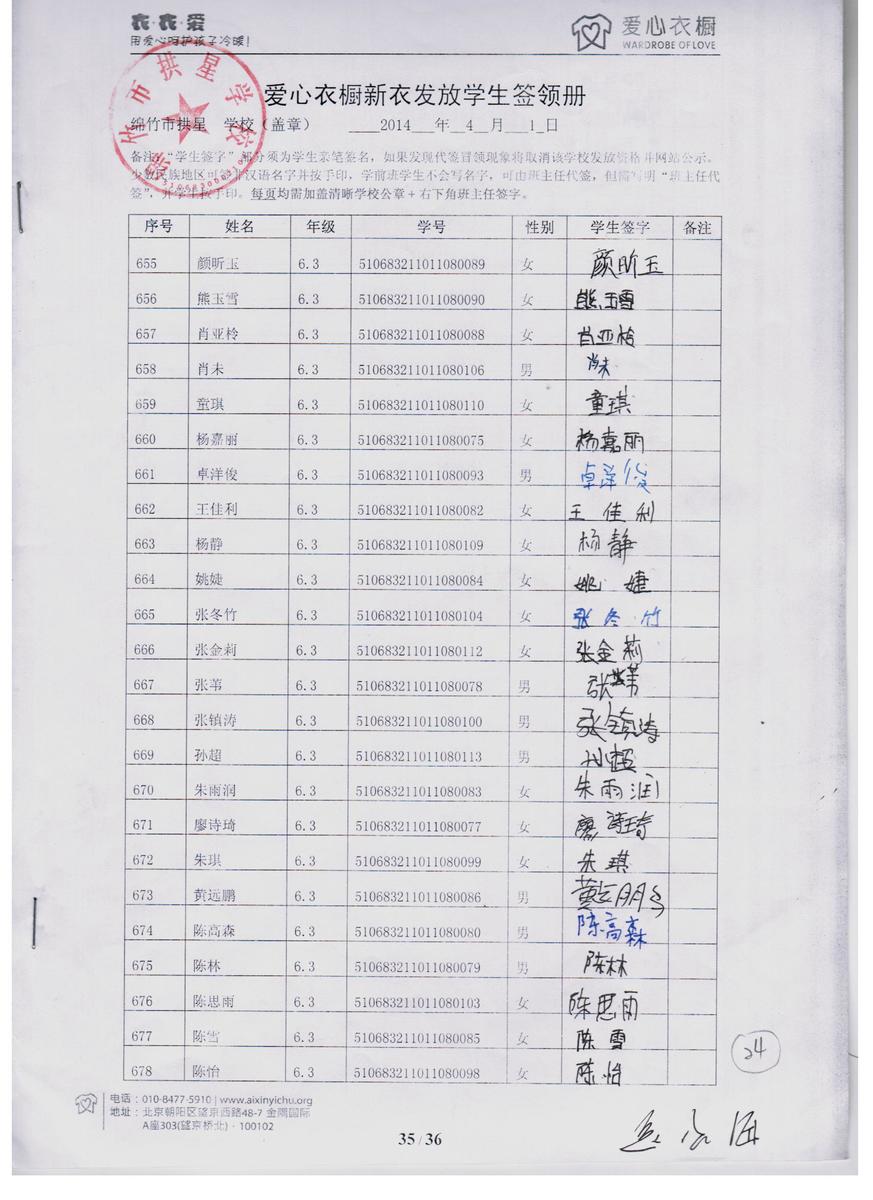 衣·衣·爱
用爱心呵护孩子冷暖!
爱心衣橱
WARDROBE OF LOVE
爱心衣橱新衣发放学生签领册
绵竹市拱星 学校（盖章） 2014 年 4 月 1 日
备注：“学生签字”部分须为学生亲笔签名，如果发现代签冒领现象将取消该学校发放资格并网站公示。
少数民族地区可签非汉语名字并按手印，学前班学生不会写名字，可由班主任代签，但需写明“班主任代
签”，并学生按手印。每页均需加盖清晰学校公章+右下角班主任签字。
序号 姓名 年级 学号 性别 学生签字 备注
655 颜昕玉 6.3 510683211011080089 女 颜昕玉
656 熊玉雪 6.3 510683211011080090 女 熊玉雪
657 肖亚柃 6.3 510683211011080088 女 肖亚柃
658 肖未 6.3 510683211011080106 男 肖未
659 童琪 6.3 510683211011080110 女 童琪
660 杨嘉丽 6.3 510683211011080075 女 杨嘉丽
661 卓洋俊 6.3 510683211011080093 男 卓洋俊
662 王佳利 6.3 510683211011080082 女 王佳利
663 杨静 6.3 510683211011080109 女 杨静
664 姚婕 6.3 510683211011080084 女 姚婕
665 张冬竹 6.3 510683211011080104 女 张冬竹
666 张金莉 6.3 510683211011080112 女 张金莉
667 张苇 6.3 510683211011080078 男 张苇
668 张镇涛 6.3 510683211011080100 男 张镇涛
669 孙超 6.3 510683211011080113 男 孙超
670 朱雨润 6.3 510683211011080083 女 朱雨润
671 廖诗琦 6.3 510683211011080077 女 廖诗琦
672 朱琪 6.3 510683211011080099 女 朱琪
673 黄远鹏 6.3 510683211011080086 男 黄远鹏
674 陈高森 6.3 510683211011080080 男 陈高森
675 陈林 6.3 510683211011080079 男 陈林
676 陈思雨 6.3 510683211011080103 女 陈思雨
677 陈雪 6.3 510683211011080085 女 陈雪
678 陈怡 6.3 510683211011080098 女 陈怡
24
电话：010-8477-5910 | www.aixinyichu.org
地址：北京朝阳区望京西路48-7 金隅国际
A座303(望京桥北)·100102
35 / 36